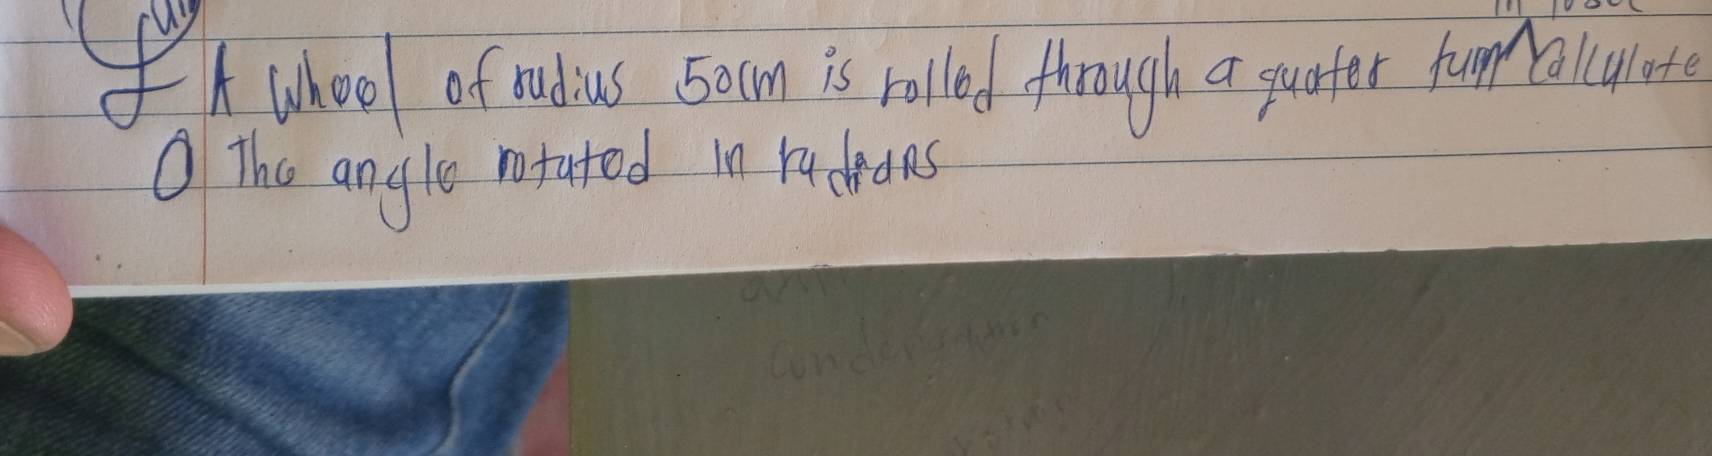 in 10sec
A wheel of radius 50cm is rolled through a quater turn Calculate
The angle rotated in radians